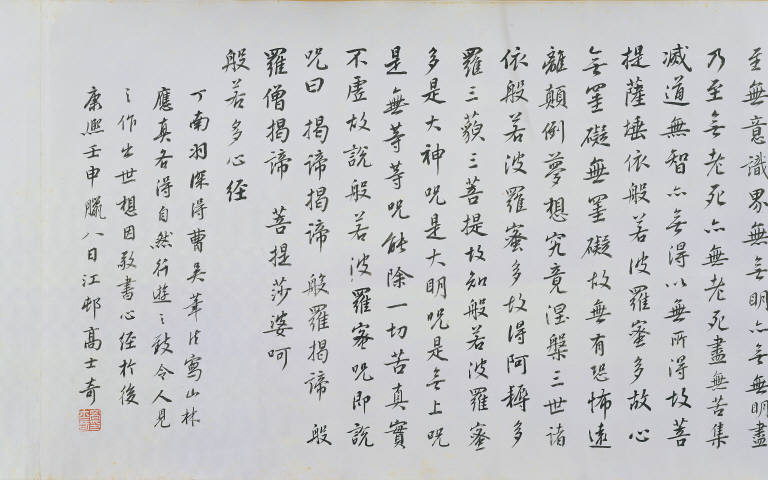 至無意識界無無明亦無無明盡
乃至無老死亦無老死盡無苦集
滅道無智亦無得以無所得故菩
提薩埵依般若波羅蜜多故心
無罣礙無罣礙故無有恐怖遠
離顛倒夢想究竟涅槃三世諸
依般若波羅蜜多故得阿耨多
羅三藐三菩提故知般若波羅蜜
多是大神咒是大明咒是無上咒
是無等等咒能除一切苦真實
不虛故說般若波羅蜜咒即說
咒曰 揭諦揭諦 般羅揭諦 般
羅僧揭諦 菩提莎婆呵
般若多心経
丁南羽深得曹吳筆法寫山林
應真各得自然行遊之致令人見
之作出世想因敬書心経於後
康熙壬申臘八日江邨高士奇